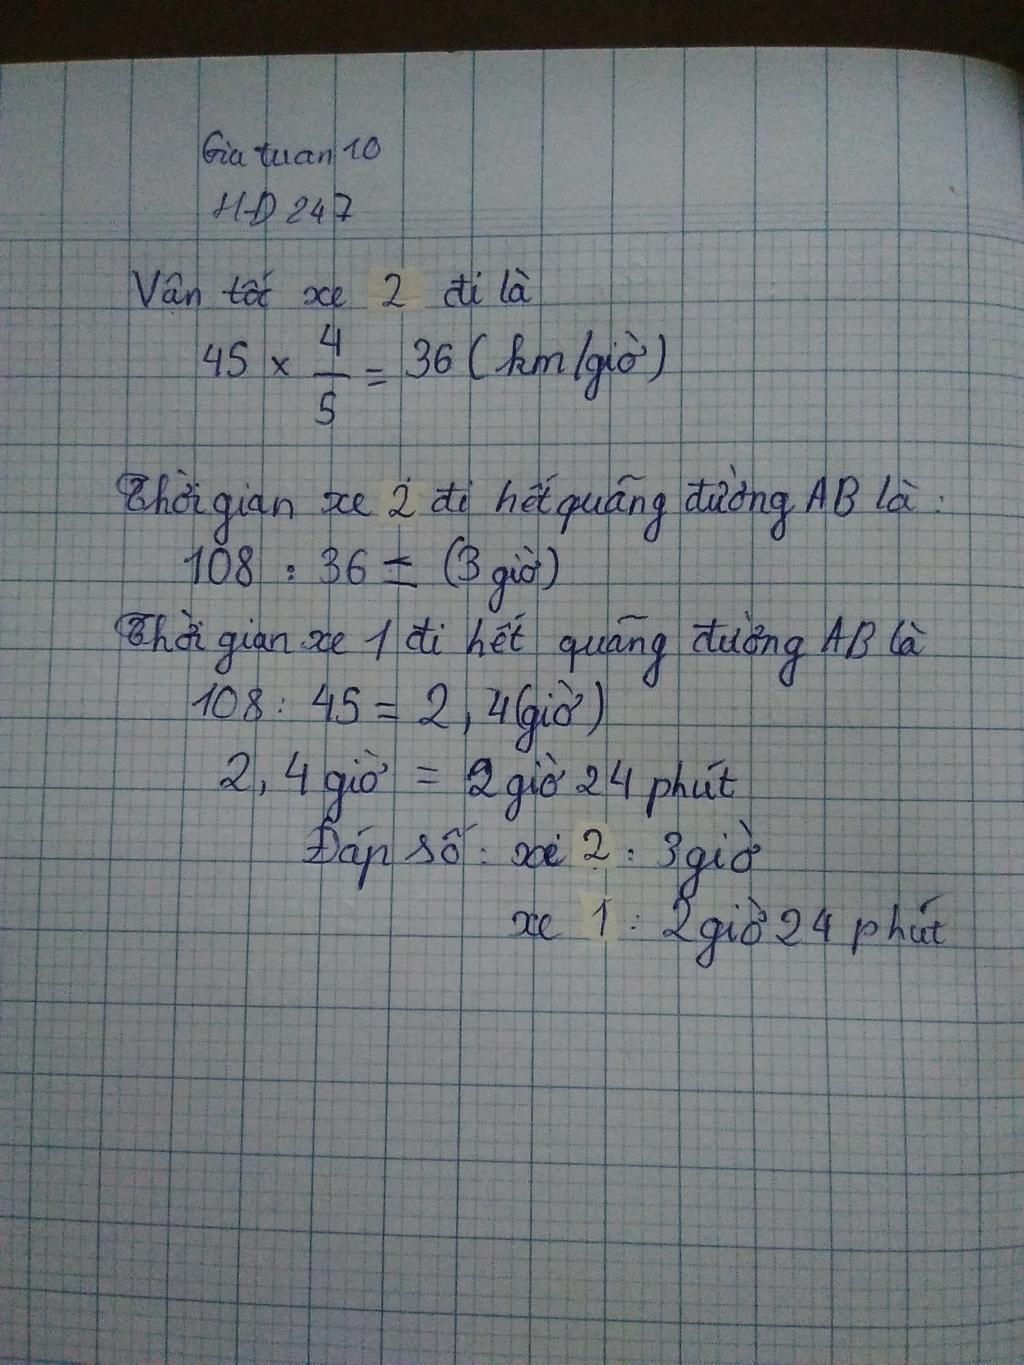 Gia tuan 10
HD 247
Vận tốc xe 2 đi là
45 × 4/5 = 36 (km/giờ)
Thời gian xe 2 đi hết quãng đường AB là :
108 : 36 = (3 giờ)
Thời gian xe 1 đi hết quãng đường AB là
108 : 45 = 2,4(giờ)
2,4 giờ = 2 giờ 24 phút
Đáp số : xe 2 : 3 giờ
xe 1 : 2 giờ 24 phút